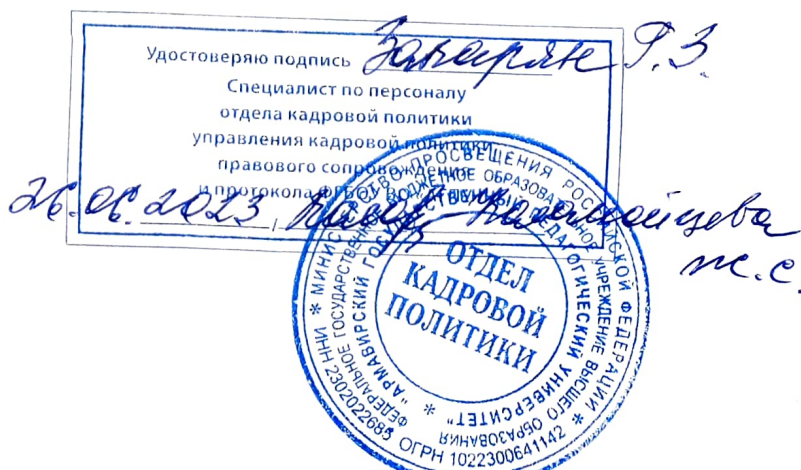 Удостоверяю подпись Закарян Р.З.
Специалист по персоналу
отдела кадровой политики
управления кадровой политики
правового сопровождения
и протокола ФГБОУ ВО
26.06.2023 /
ж.с.
* МИНИСТЕРСТВО ПРОСВЕЩЕНИЯ РОССИЙСКОЙ ФЕДЕРАЦИИ *
ФЕДЕРАЛЬНОЕ ГОСУДАРСТВЕННОЕ БЮДЖЕТНОЕ ОБРАЗОВАТЕЛЬНОЕ УЧРЕЖДЕНИЕ ВЫСШЕГО ОБРАЗОВАНИЯ
* "АРМАВИРСКИЙ ГОСУДАРСТВЕННЫЙ ПЕДАГОГИЧЕСКИЙ УНИВЕРСИТЕТ"
ОТДЕЛ
КАДРОВОЙ
ПОЛИТИКИ
ИНН 2302022685 ОГРН 1022300641142